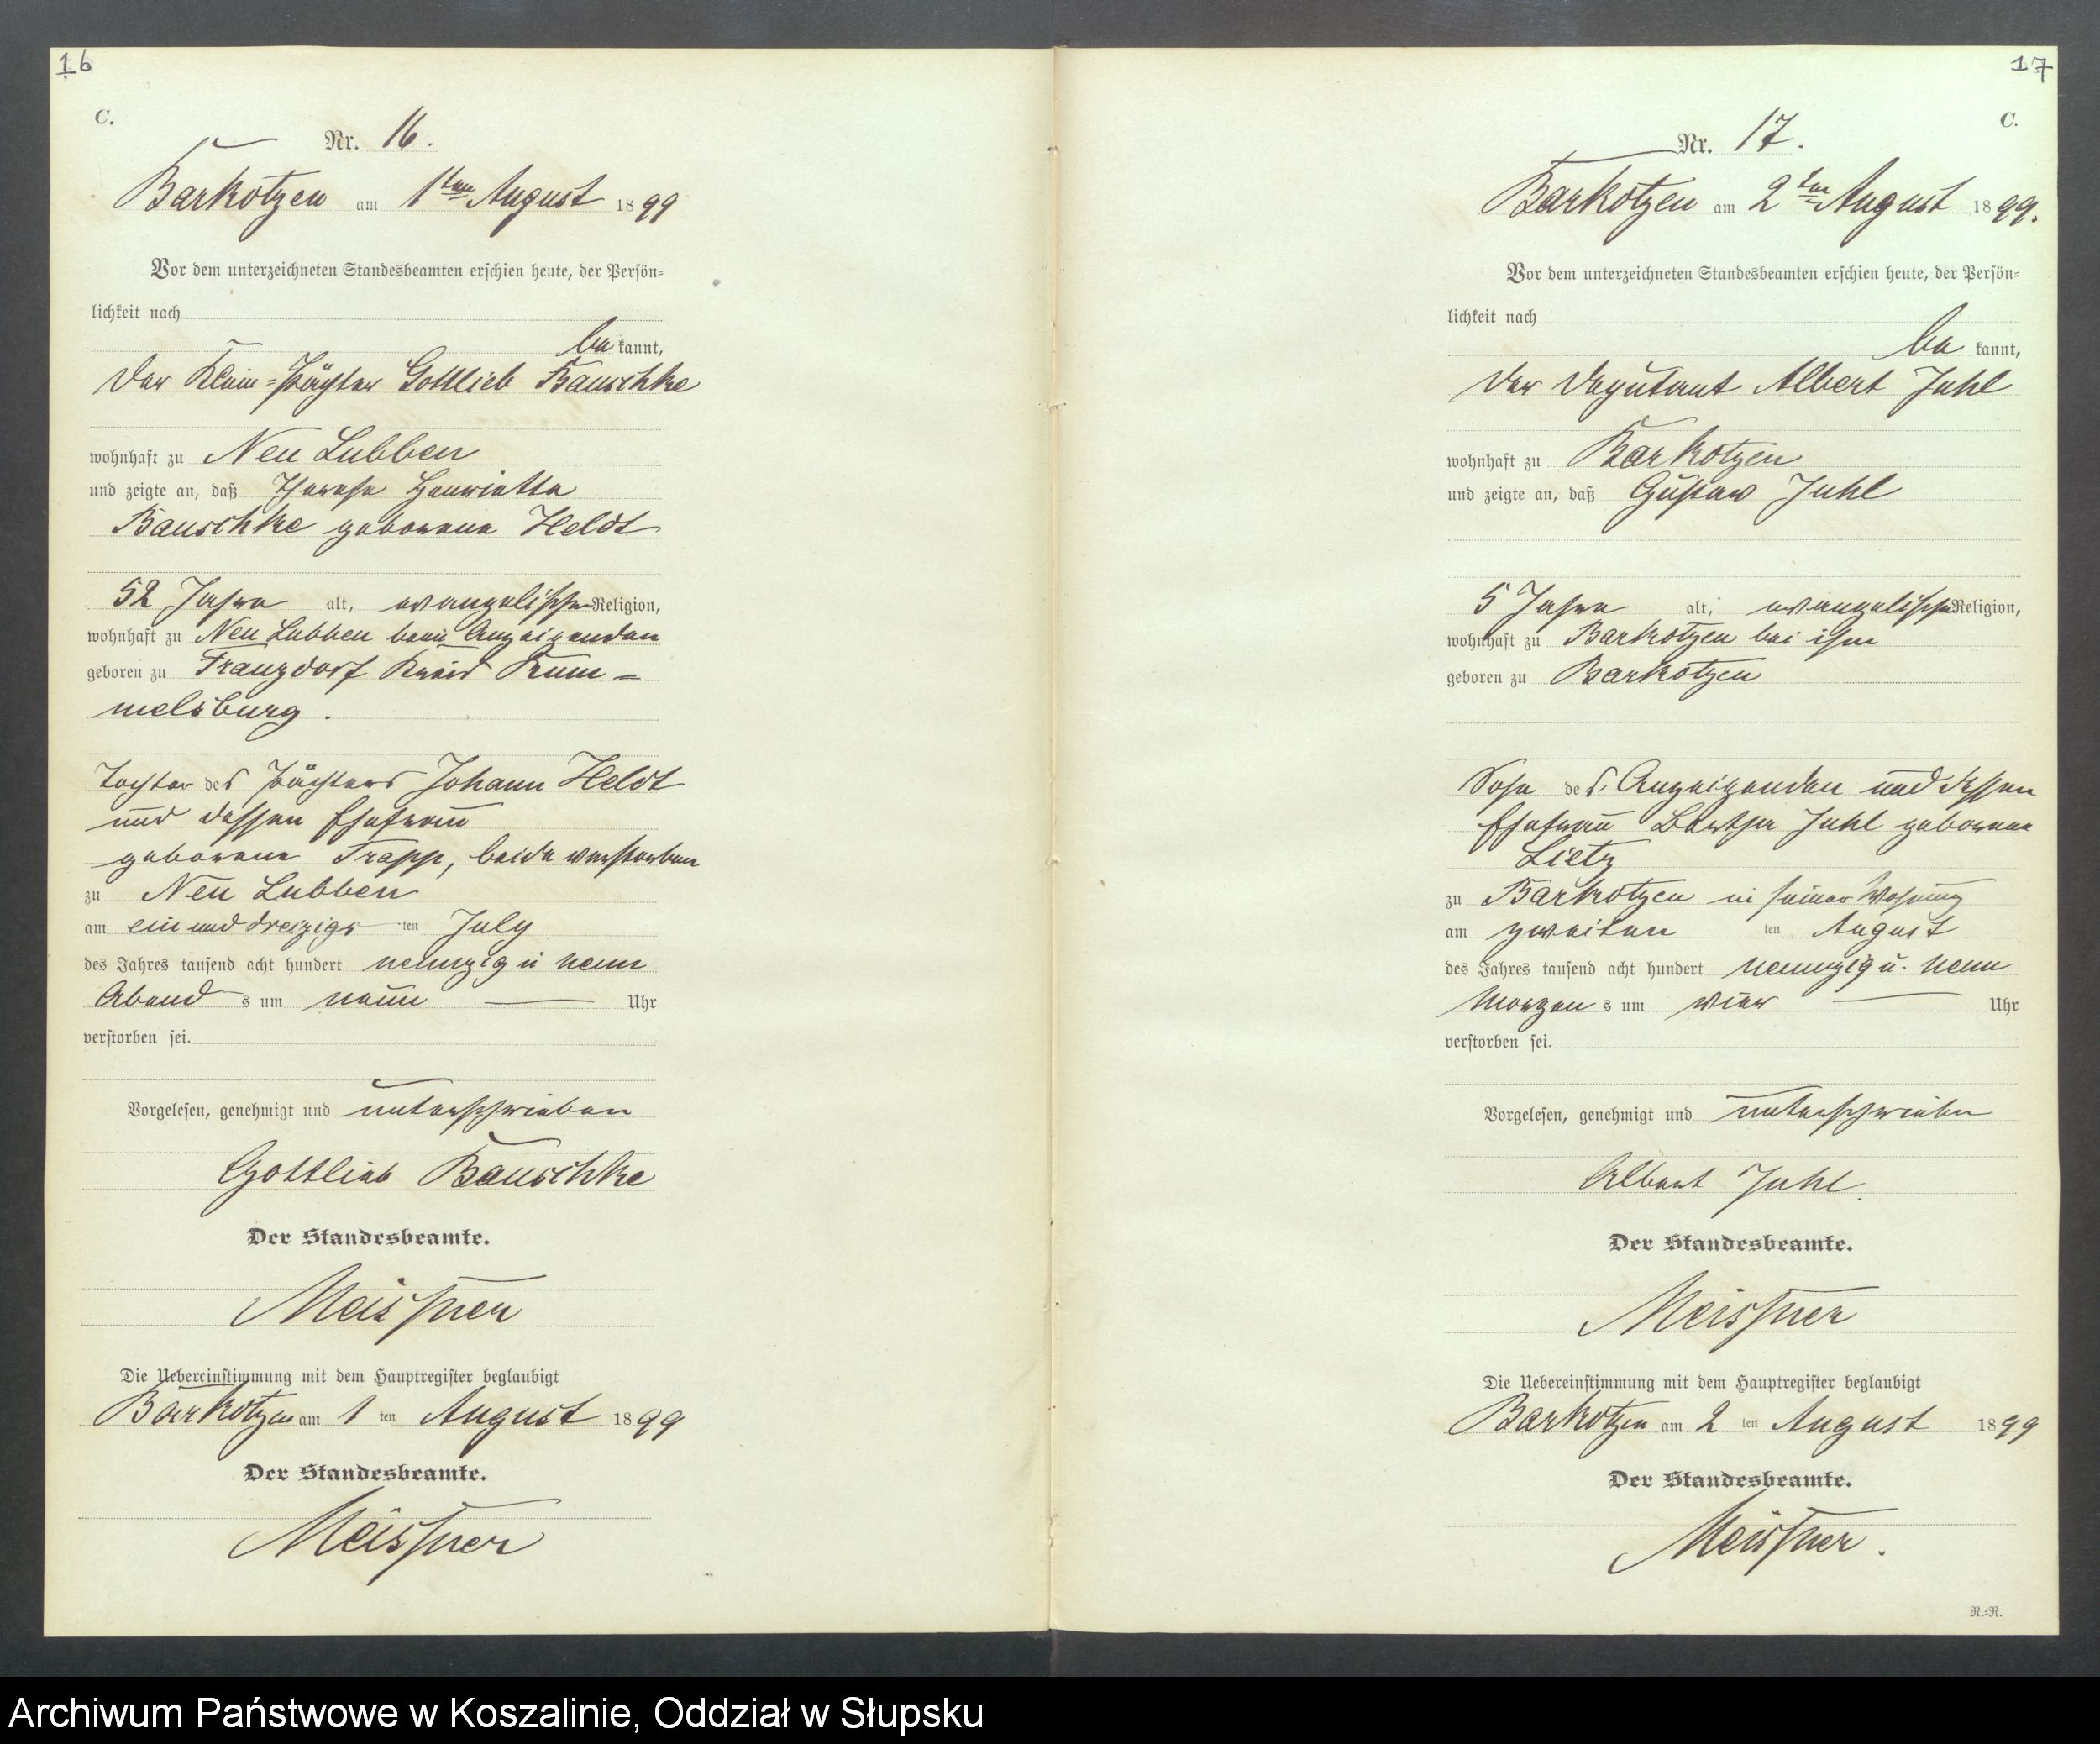 16
C.
Nr. 16.
Barkotzen am 1ten August 1899
Vor dem unterzeichneten Standesbeamten erschien heute, der Persön=
lichkeit nach
be kannt,
der Klein=Pächter Gottlieb Bauschke
wohnhaft zu Neu Lubben
und zeigte an, daß Therese Henriette
Bauschke geborene Heldt
52 Jahre alt, evangelischer Religion,
wohnhaft zu Neu Lubben beim Anzeigenden
geboren zu Franzdorf Kreis Rum=
melsburg.
Tochter des Pächters Johann Heldt
und dessen Ehefrau
geborene Trapp, beide verstorben
zu Neu Lubben
am ein und dreizigs ten July
des Jahres tausend acht hundert neunzig u neun
Abend s um neun Uhr
verstorben sei.
Vorgelesen, genehmigt und unterschrieben
Gottlieb Bauschke
Der Standesbeamte.
Meissner
Die Uebereinstimmung mit dem Hauptregister beglaubigt
Barkotzen am 1 ten August 1899
Der Standesbeamte.
Meissner
17
C.
Nr. 17.
Barkotzen am 2ten August 1899.
Vor dem unterzeichneten Standesbeamten erschien heute, der Persön=
lichkeit nach
be kannt,
der Deputant Albert Juhl
wohnhaft zu Barkotzen
und zeigte an, daß Gustav Juhl
5 Jahre alt, evangelischer Religion,
wohnhaft zu Barkotzen bei ihm
geboren zu Barkotzen
Sohn des Anzeigenden und dessen
Ehefrau Bertha Juhl geborene
Lietz
zu Barkotzen in seiner Wohnung
am zweiten ten August
des Jahres tausend acht hundert neunzig u. neun
Morgen s um vier Uhr
verstorben sei.
Vorgelesen, genehmigt und unterschrieben
Albert Juhl.
Der Standesbeamte.
Meissner
Die Uebereinstimmung mit dem Hauptregister beglaubigt
Barkotzen am 2 ten August 1899
Der Standesbeamte.
Meissner.
N.=R.
Archiwum Państwowe w Koszalinie, Oddział w Słupsku